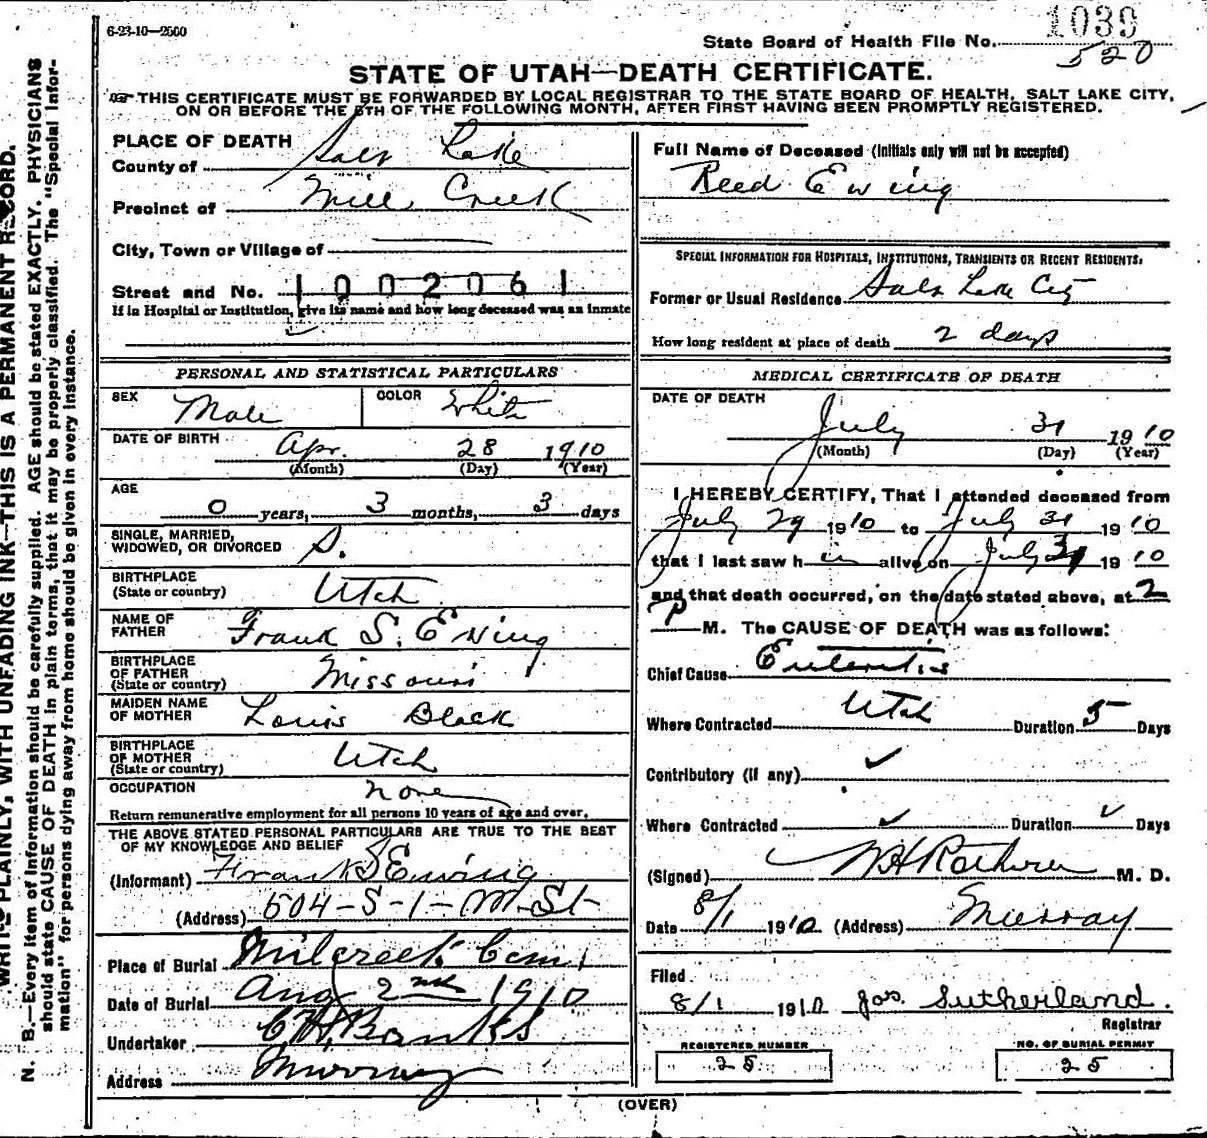 6-23-10—2500
1039
State Board of Health File No.
520
STATE OF UTAH—DEATH CERTIFICATE.
THIS CERTIFICATE MUST BE FORWARDED BY LOCAL REGISTRAR TO THE STATE BOARD OF HEALTH, SALT LAKE CITY,
ON OR BEFORE THE 5TH OF THE FOLLOWING MONTH, AFTER FIRST HAVING BEEN PROMPTLY REGISTERED.
PLACE OF DEATH
County of Salt Lake
Precinct of Mill Creek
City, Town or Village of
Street and No. 1002061
If in Hospital or Institution, give its name and how long deceased was an inmate
PERSONAL AND STATISTICAL PARTICULARS
SEX Male COLOR White
DATE OF BIRTH Apr. 28 1910
(Month) (Day) (Year)
AGE
0 years, 3 months, 3 days
SINGLE, MARRIED,
WIDOWED, OR DIVORCED S.
BIRTHPLACE
(State or country) Utah
NAME OF
FATHER Frank S. Ewing
BIRTHPLACE
OF FATHER
(State or country) Missouri
MAIDEN NAME
OF MOTHER Louis Black
BIRTHPLACE
OF MOTHER
(State or country) Utah
OCCUPATION none
Return remunerative employment for all persons 10 years of age and over.
THE ABOVE STATED PERSONAL PARTICULARS ARE TRUE TO THE BEST
OF MY KNOWLEDGE AND BELIEF
(Informant) Frank S Ewing
(Address) 604-S-1-W.St-
Place of Burial Milcreek Cem.
Date of Burial Aug 2nd 1910
Undertaker Banks
Address Murray
Full Name of Deceased (Initials only will not be accepted)
Reed Ewing
SPECIAL INFORMATION FOR HOSPITALS, INSTITUTIONS, TRANSIENTS OR RECENT RESIDENTS.
Former or Usual Residence Salt Lake City
How long resident at place of death 2 days
MEDICAL CERTIFICATE OF DEATH
DATE OF DEATH
July 31 1910
(Month) (Day) (Year)
I HEREBY CERTIFY, That I attended deceased from
July 29 1910 to July 31 1910
that I last saw h im alive on July 31 1910
and that death occurred, on the date stated above, at 2
P M. The CAUSE OF DEATH was as follows:
Chief Cause Enteritis
Where Contracted Utah Duration 5 Days
Contributory (if any)
Where Contracted Duration Days
(Signed) M. D.
Date 8/1 1910 (Address) Murray
Filed
8/1 1910 Jas. Sutherland.
Registrar
REGISTERED NUMBER
25
NO. OF BURIAL PERMIT
25
(OVER)
WRITE PLAINLY, WITH UNFADING INK—THIS IS A PERMANENT RECORD.
N. B.—Every item of information should be carefully supplied. AGE should be stated EXACTLY. PHYSICIANS
should state CAUSE OF DEATH in plain terms, that it may be properly classified. The "Special Infor-
mation" for persons dying away from home should be given in every instance.